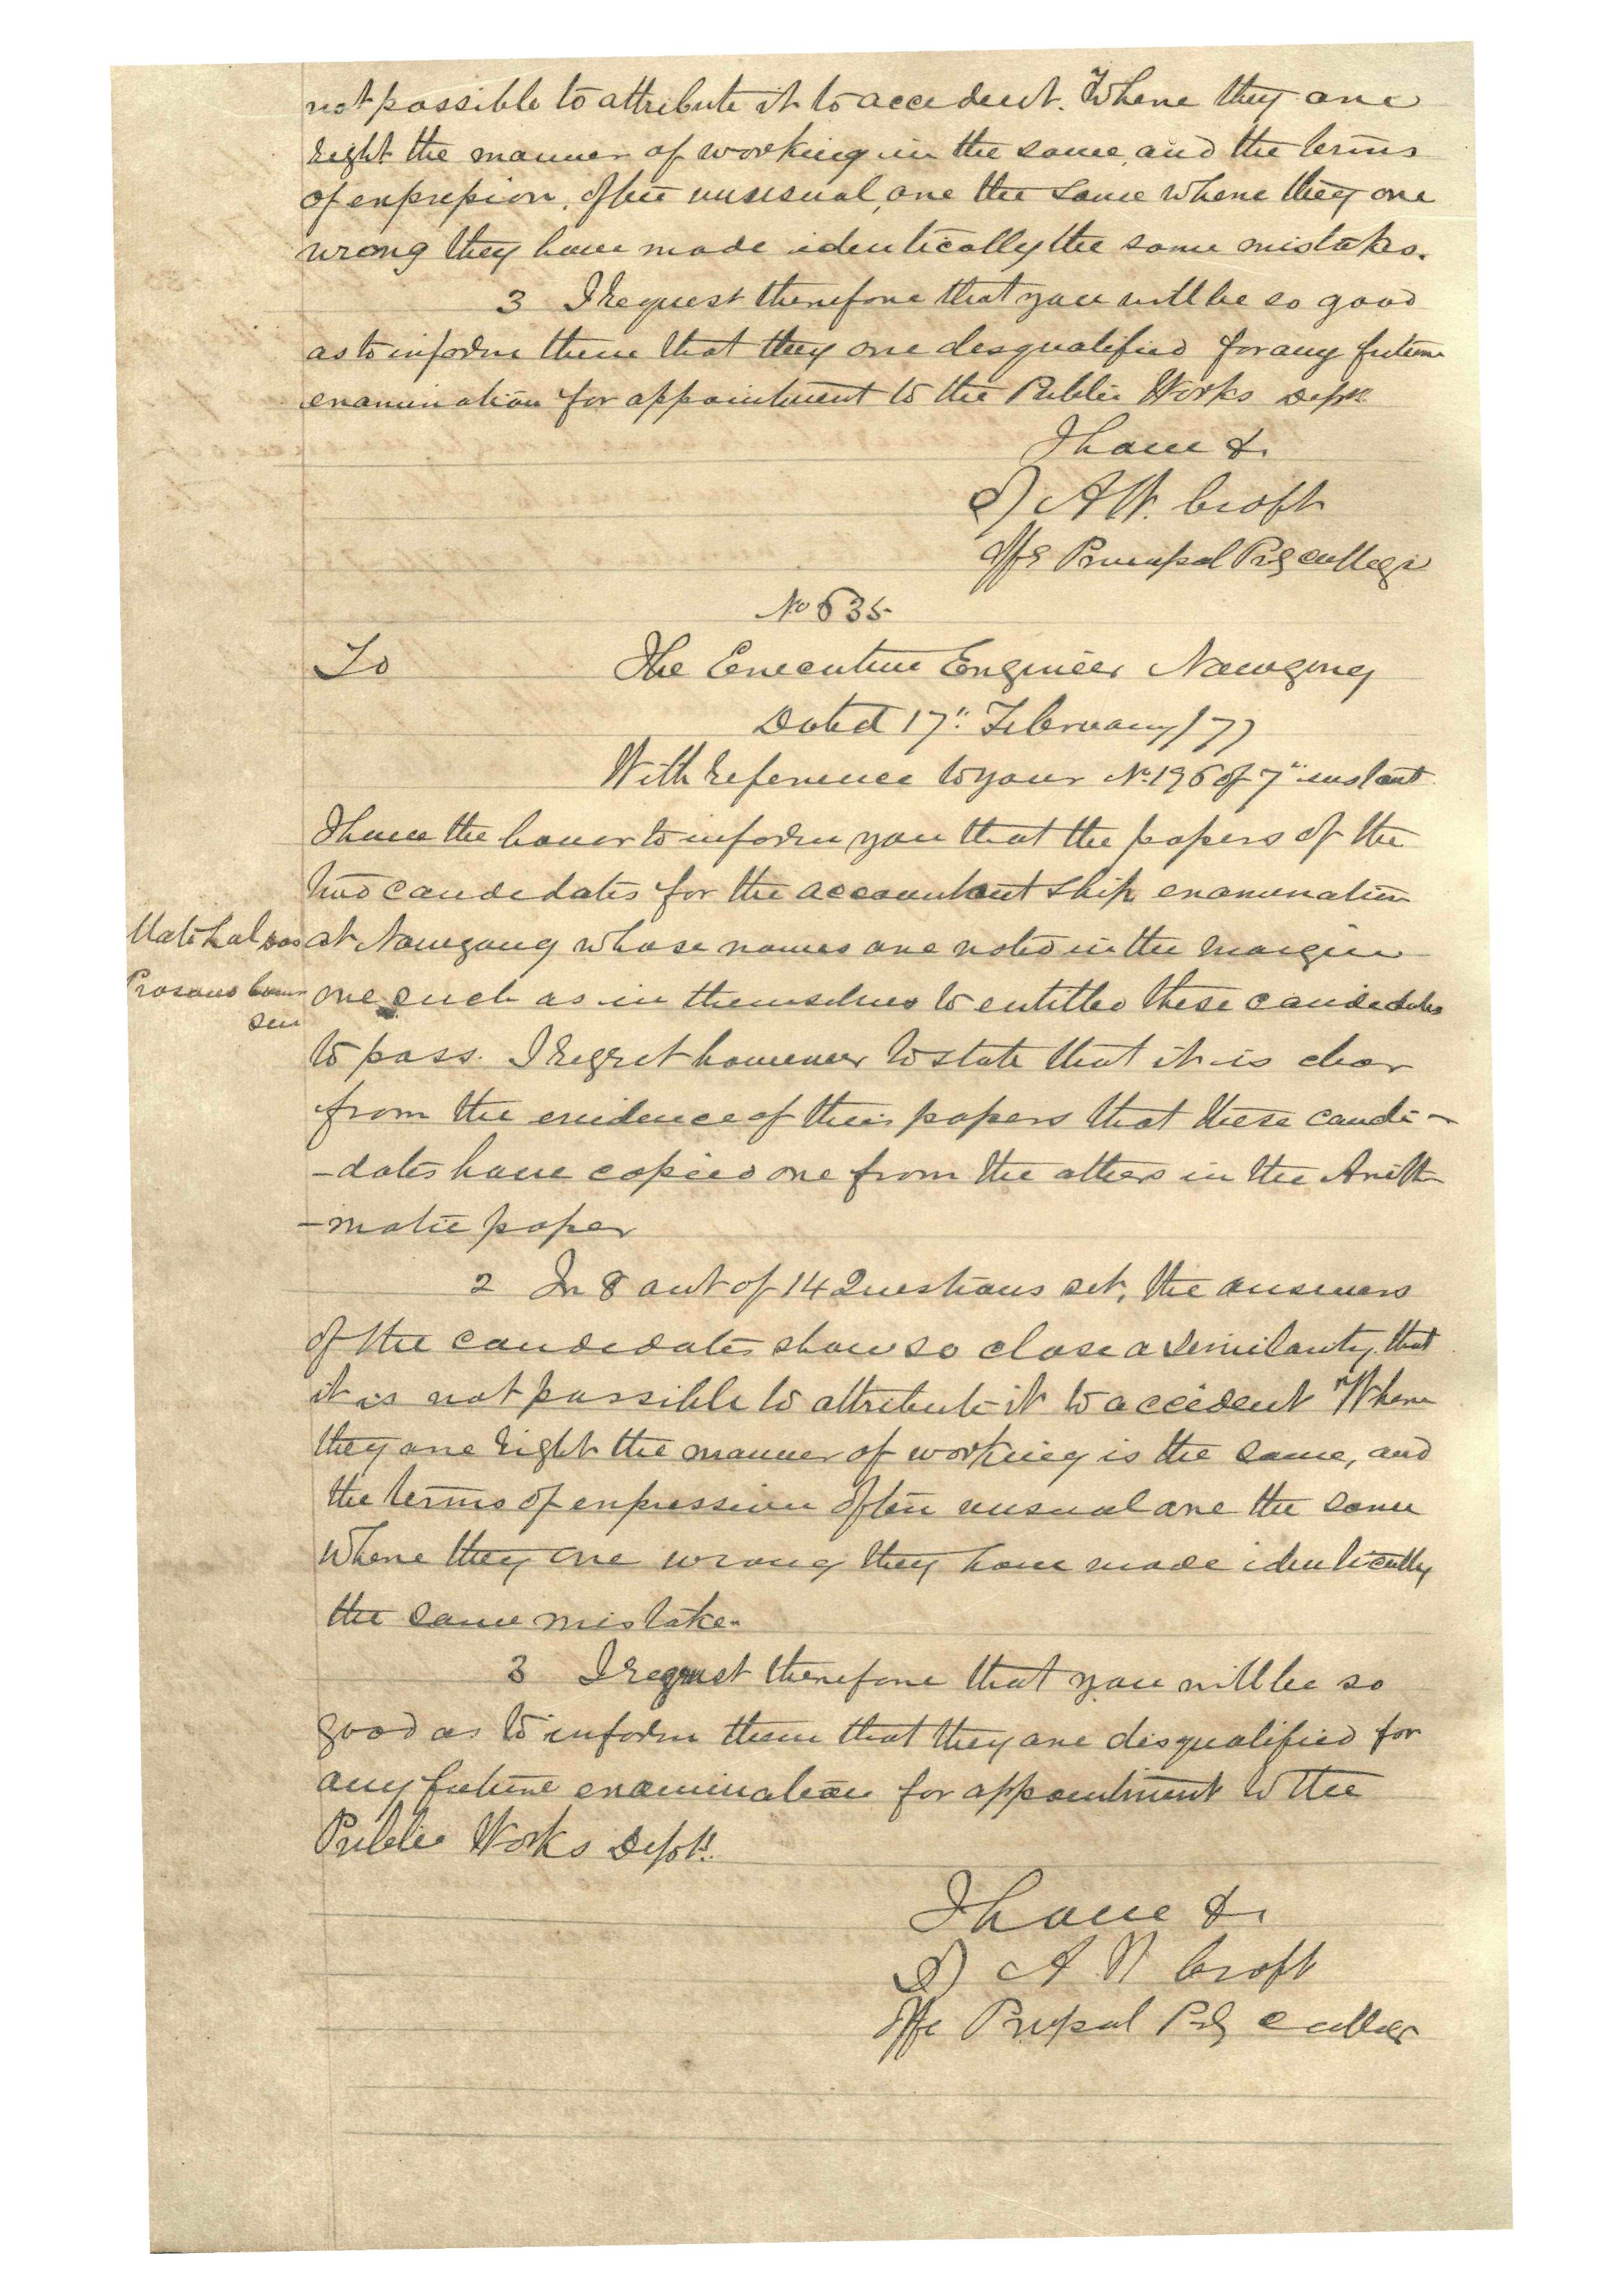 not possible to attribute it to accident. Where they are
right the manner of working in the same, and the terms
of expression, often unusual, are the same where they are
wrong they have made identically the same mistakes.
3 I request therefore that you will be so good
as to inform them that they are desqualified for any future
examination for appointment to the Public Works Deptt
I have &.
S) A W. Croft
Offg Principal Presy College
No 635
To The Executive Engineer Nowgong
Dated 17th February /77
With reference to your No. 196 of 7th instant
I have the honor to inform you that the papers of the
two candidates for the accountant ship examination
Lal Das at Nowgong whose names are noted in the margin
Sen are such as in themselves to entitled these candidates
to pass. I regret however to state that it is clear
from the evidence of their papers that these candi-
-dates have copied one from the others in the Arith
-matic paper
2 In 8 out of 14 Questions set, the answers
of the candidates show so close a similarity, that
it is not possible to attribute it to accident Where
they are right the manner of working is the same, and
the terms of expression often unusual are the same
Where they are wrong they have made identically
the same mistake.
3 I request therefore that you will be so
good as to inform them that they are disqualified for
any future examination for appointment to the
Public Works Deptt.
I have &.
S) A W Croft
Offg Principal College